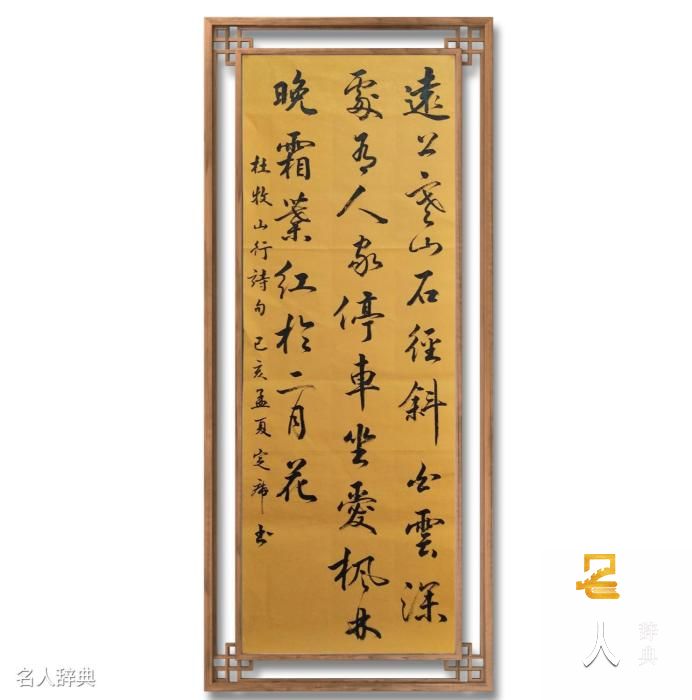 遠上寒山石徑斜白雲深
處有人家停車坐愛楓林
晚霜葉紅於二月花
杜牧山行詩句 己亥孟夏定書
名人辞典
名人辞典